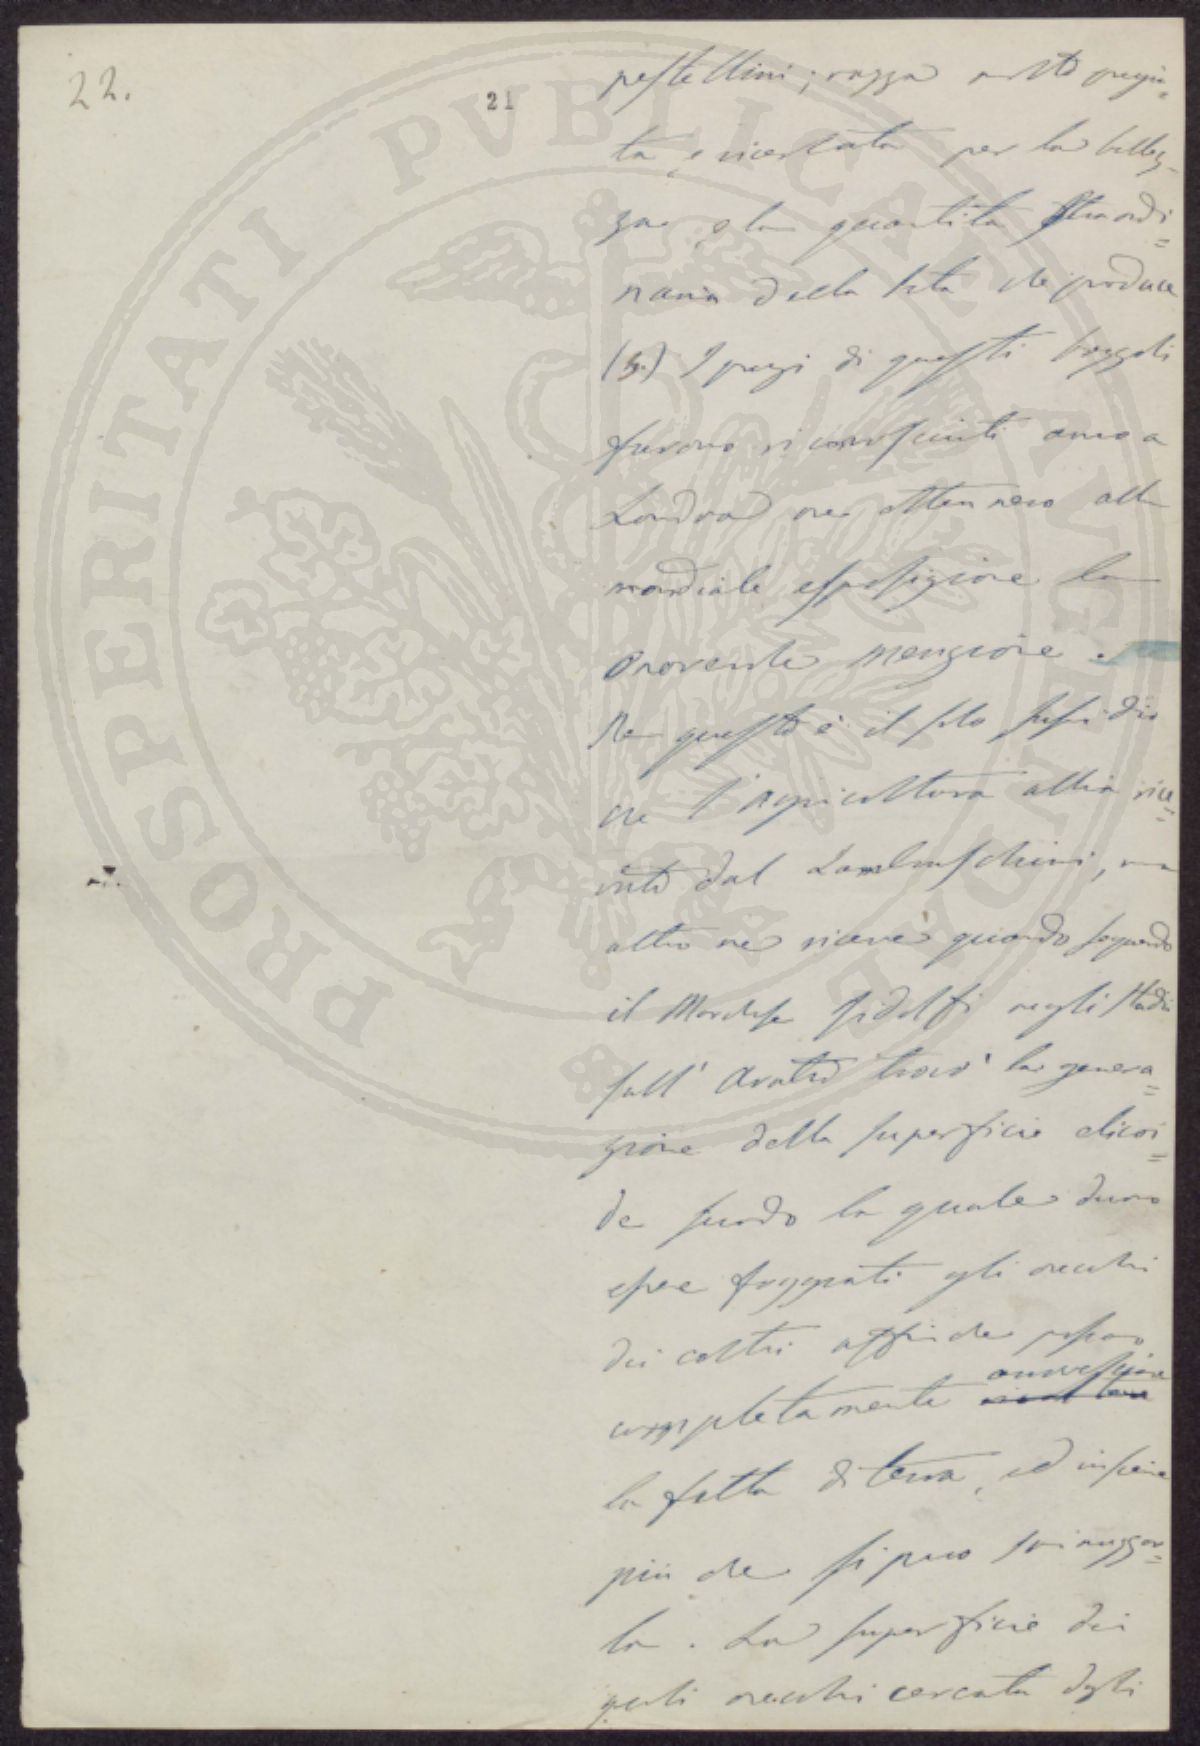 22.
21
pestellini; razza molto pregia=
ta e ricercata per la bellez=
za e la quantità straordi=
naria della seta che produce
(5.) I pregi di questi bozzoli
furono riconosciuti anco a
Londra ove ottennero alla
mondiale esposizione la
onorevole menzione.
Ne questo è il solo sussidio
che l'Agricoltura abbia rice=
vuto dal Lambruschini, ma
altro ne riceve quando seguendo
il Marchese Ridolfi negli studi
sull' Aratro trovò la genera=
zione della superficie elicoi=
de secondo la quale devono
essere foggiati gli orecchi
dei coltri affinche possano
completamente
rovesciare
la fetta di terra, ed insieme
più che si può sminuzzar=
la. La superficie dei
quali orecchi cercata dagli
PROSPERITATI PVBLICAE AVGENDAE